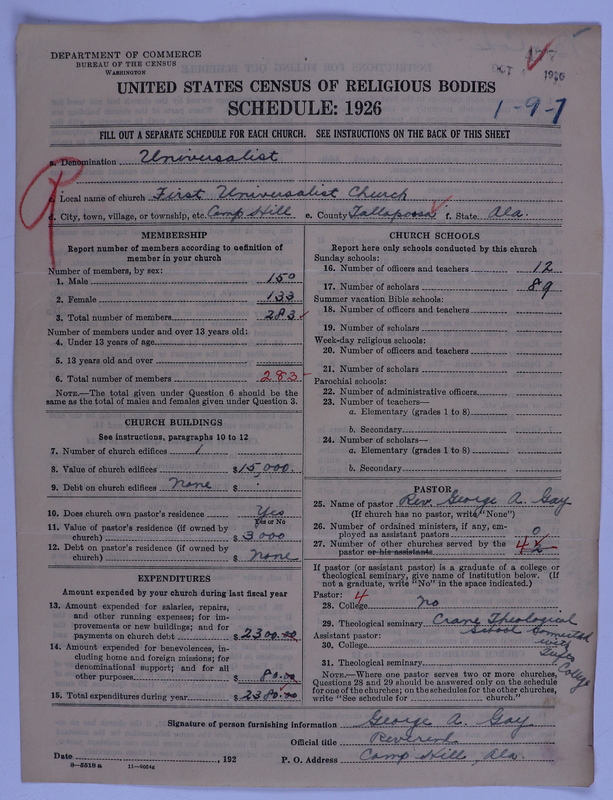 DEPARTMENT OF COMMERCE
BUREAU OF THE CENSUS
WASHINGTON
OCT 1926
UNITED STATES CENSUS OF RELIGIOUS BODIES
SCHEDULE: 1926
1-9-7
FILL OUT A SEPARATE SCHEDULE FOR EACH CHURCH. SEE INSTRUCTIONS ON THE BACK OF THIS SHEET
a. Denomination Universalist
c. Local name of church First Universalist Church
d. City, town, village, or township, etc. Camp Hill e. County Tallapoosa f. State Ala.
MEMBERSHIP
Report number of members according to definition of member in your church
Number of members, by sex:
1. Male 150
2. Female 133
3. Total number of members 283
Number of members under and over 13 years old:
4. Under 13 years of age
5. 13 years old and over
6. Total number of members 283
NOTE.—The total given under Question 6 should be
same as the total of males and females given under Question 3.
CHURCH BUILDINGS
See instructions, paragraphs 10 to 12
7. Number of church edifices 1
8. Value of church edifices $15,000.
9. Debt on church edifices None $
10. Does church own pastor's residence Yes
Yes or No
11. Value of pastor's residence (if owned by
church) $3000
12. Debt on pastor's residence (if owned by
church) $ None
EXPENDITURES
Amount expended by your church during last fiscal year
13. Amount expended for salaries, repairs,
and other running expenses; for im-
provements or new buildings; and for
payments on church debt $2300.00
14. Amount expended for benevolences, in-
cluding home and foreign missions; for
denominational support; and for all
other purposes $80.00
15. Total expenditures during year $2380.00
CHURCH SCHOOLS
Report here only schools conducted by this church
Sunday schools:
16. Number of officers and teachers 12
17. Number of scholars 89
Summer vacation Bible schools:
18. Number of officers and teachers
19. Number of scholars
Week-day religious schools:
20. Number of officers and teachers
21. Number of scholars
Parochial schools:
22. Number of administrative officers
23. Number of teachers—
a. Elementary (grades 1 to 8)
b. Secondary
24. Number of scholars—
a. Elementary (grades 1 to 8)
b. Secondary
PASTOR
25. Name of pastor Rev. George A. Gay
(If church has no pastor, write "None")
26. Number of ordained ministers, if any, em-
ployed as assistant pastors 0
27. Number of other churches served by the
pastor or his assistants 4
If pastor (or assistant pastor) is a graduate of a college or
theological seminary, give name of institution below. (If
not a graduate, write "No" in the space indicated.)
Pastor: 4
28. College No
29. Theological seminary Crane Theological
School Connected
with
Tufts
College
Assistant pastor:
30. College
31. Theological seminary
NOTE.—Where one pastor serves two or more churches,
Questions 28 and 29 should be answered only on the schedule
for one of the churches; on the schedules for the other churches,
write "See schedule for church."
Signature of person furnishing information George A. Gay
Official title Reverend
Date , 192 P. O. Address Camp Hill, Ala.
8-5518 a 11-9054a